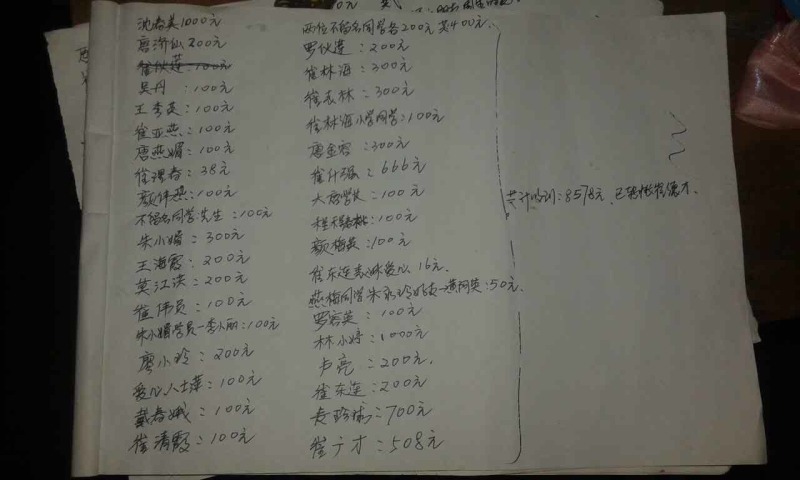 沈春英1000元
唐济仙200元
崔伙莲:100元
吴丹:100元
王李英:100元
崔亚燕:100元
唐燕媚:100元
崔理春:38元
颜伟燕:100元
不留名同学先生:100元
朱小媚:300元
王海霞:200元
莫江洪:200元
崔伟员:100元
朱小媚学员一李小丽:100元
廖小玲:200元
爱心人士萍:100元
戴春娥:100元
崔清霞:100元
两位不留名同学各200元共400元.
罗伙莲:200元
崔林海:300元
崔志林:300元
崔林海小学同学:100元
唐金容:300元
崔仕强:666元
大唐学友:100元
程:100元
颜梅英:100元
崔东连表妹爱心16元.
燕梅同学朱永玲好友一黄阿英:50元
罗容英:100元
林小婷:1000元
卢亮:200元.
崔东连:200元
:700元
崔广才:508元
共计收到:8578元,已转帐给德才.